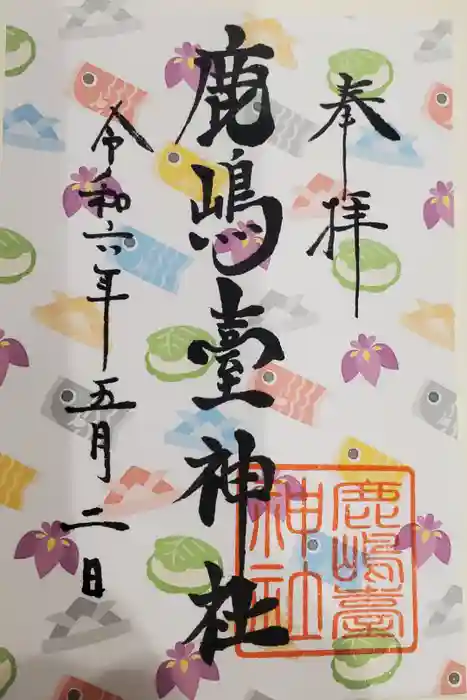 奉拝
鹿嶋臺神社
鹿嶋臺神社
令和六年五月二日